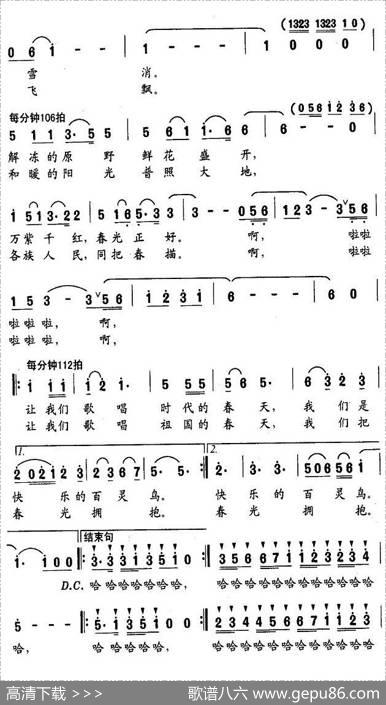 (1323 1323 1 0)
0 6 1 - - 1 - - - 1 0 0 0
雪 消。
飞 飘。
每分钟106拍
(0 5 6 1 2 3 6)
5 1 1 3· 5 5 5 6 1 1· 6 6 6 - - 0
解冻的原 野 鲜花 盛 开,
和暖的阳 光 普照 大 地,
1 5 1 3· 2 2 5 1 6 5· 3 3 - - 0 5 6 1 2 3 - 3 5 6
万紫千红,春光正好。 啊, 啦啦
各族人民,同把春描。 啊, 啦啦
1 5 3 - 3 5 6 1 2 3 1 6 - - - 6 0
啦啦啦, 啊,
啦啦啦, 啊,
每分钟112拍
1 1 1 1 2 1· 5 5 5 5 6 5· 6 3 2 3
让我们歌唱 时代的春天, 我们是
让我们歌唱 祖国的春天, 我们把
1. 2.
2 0 2 1 2 3 2 3 6 7 5· 5· 2· 3· 5 0 6 5 6 1
快乐的百灵鸟。 快乐的百灵鸟。
春光拥抱。 春光拥抱。
结束句
1· 1 0 0 3· 3 3 1 3 5 1 0 3 5 6 6 7 1 1 2 3 2 3 4
D.C. 哈哈哈哈哈哈哈, 哈哈哈哈哈哈哈哈哈哈哈哈
5 - - - 5· 1 3 5 1 0 2 3 4 4 5 6 6 7 1 2 3 4
哈, 哈哈哈哈哈, 哈哈哈哈哈哈哈哈哈哈哈哈
高清下载 >>> 歌谱八六 www.gepu86.com